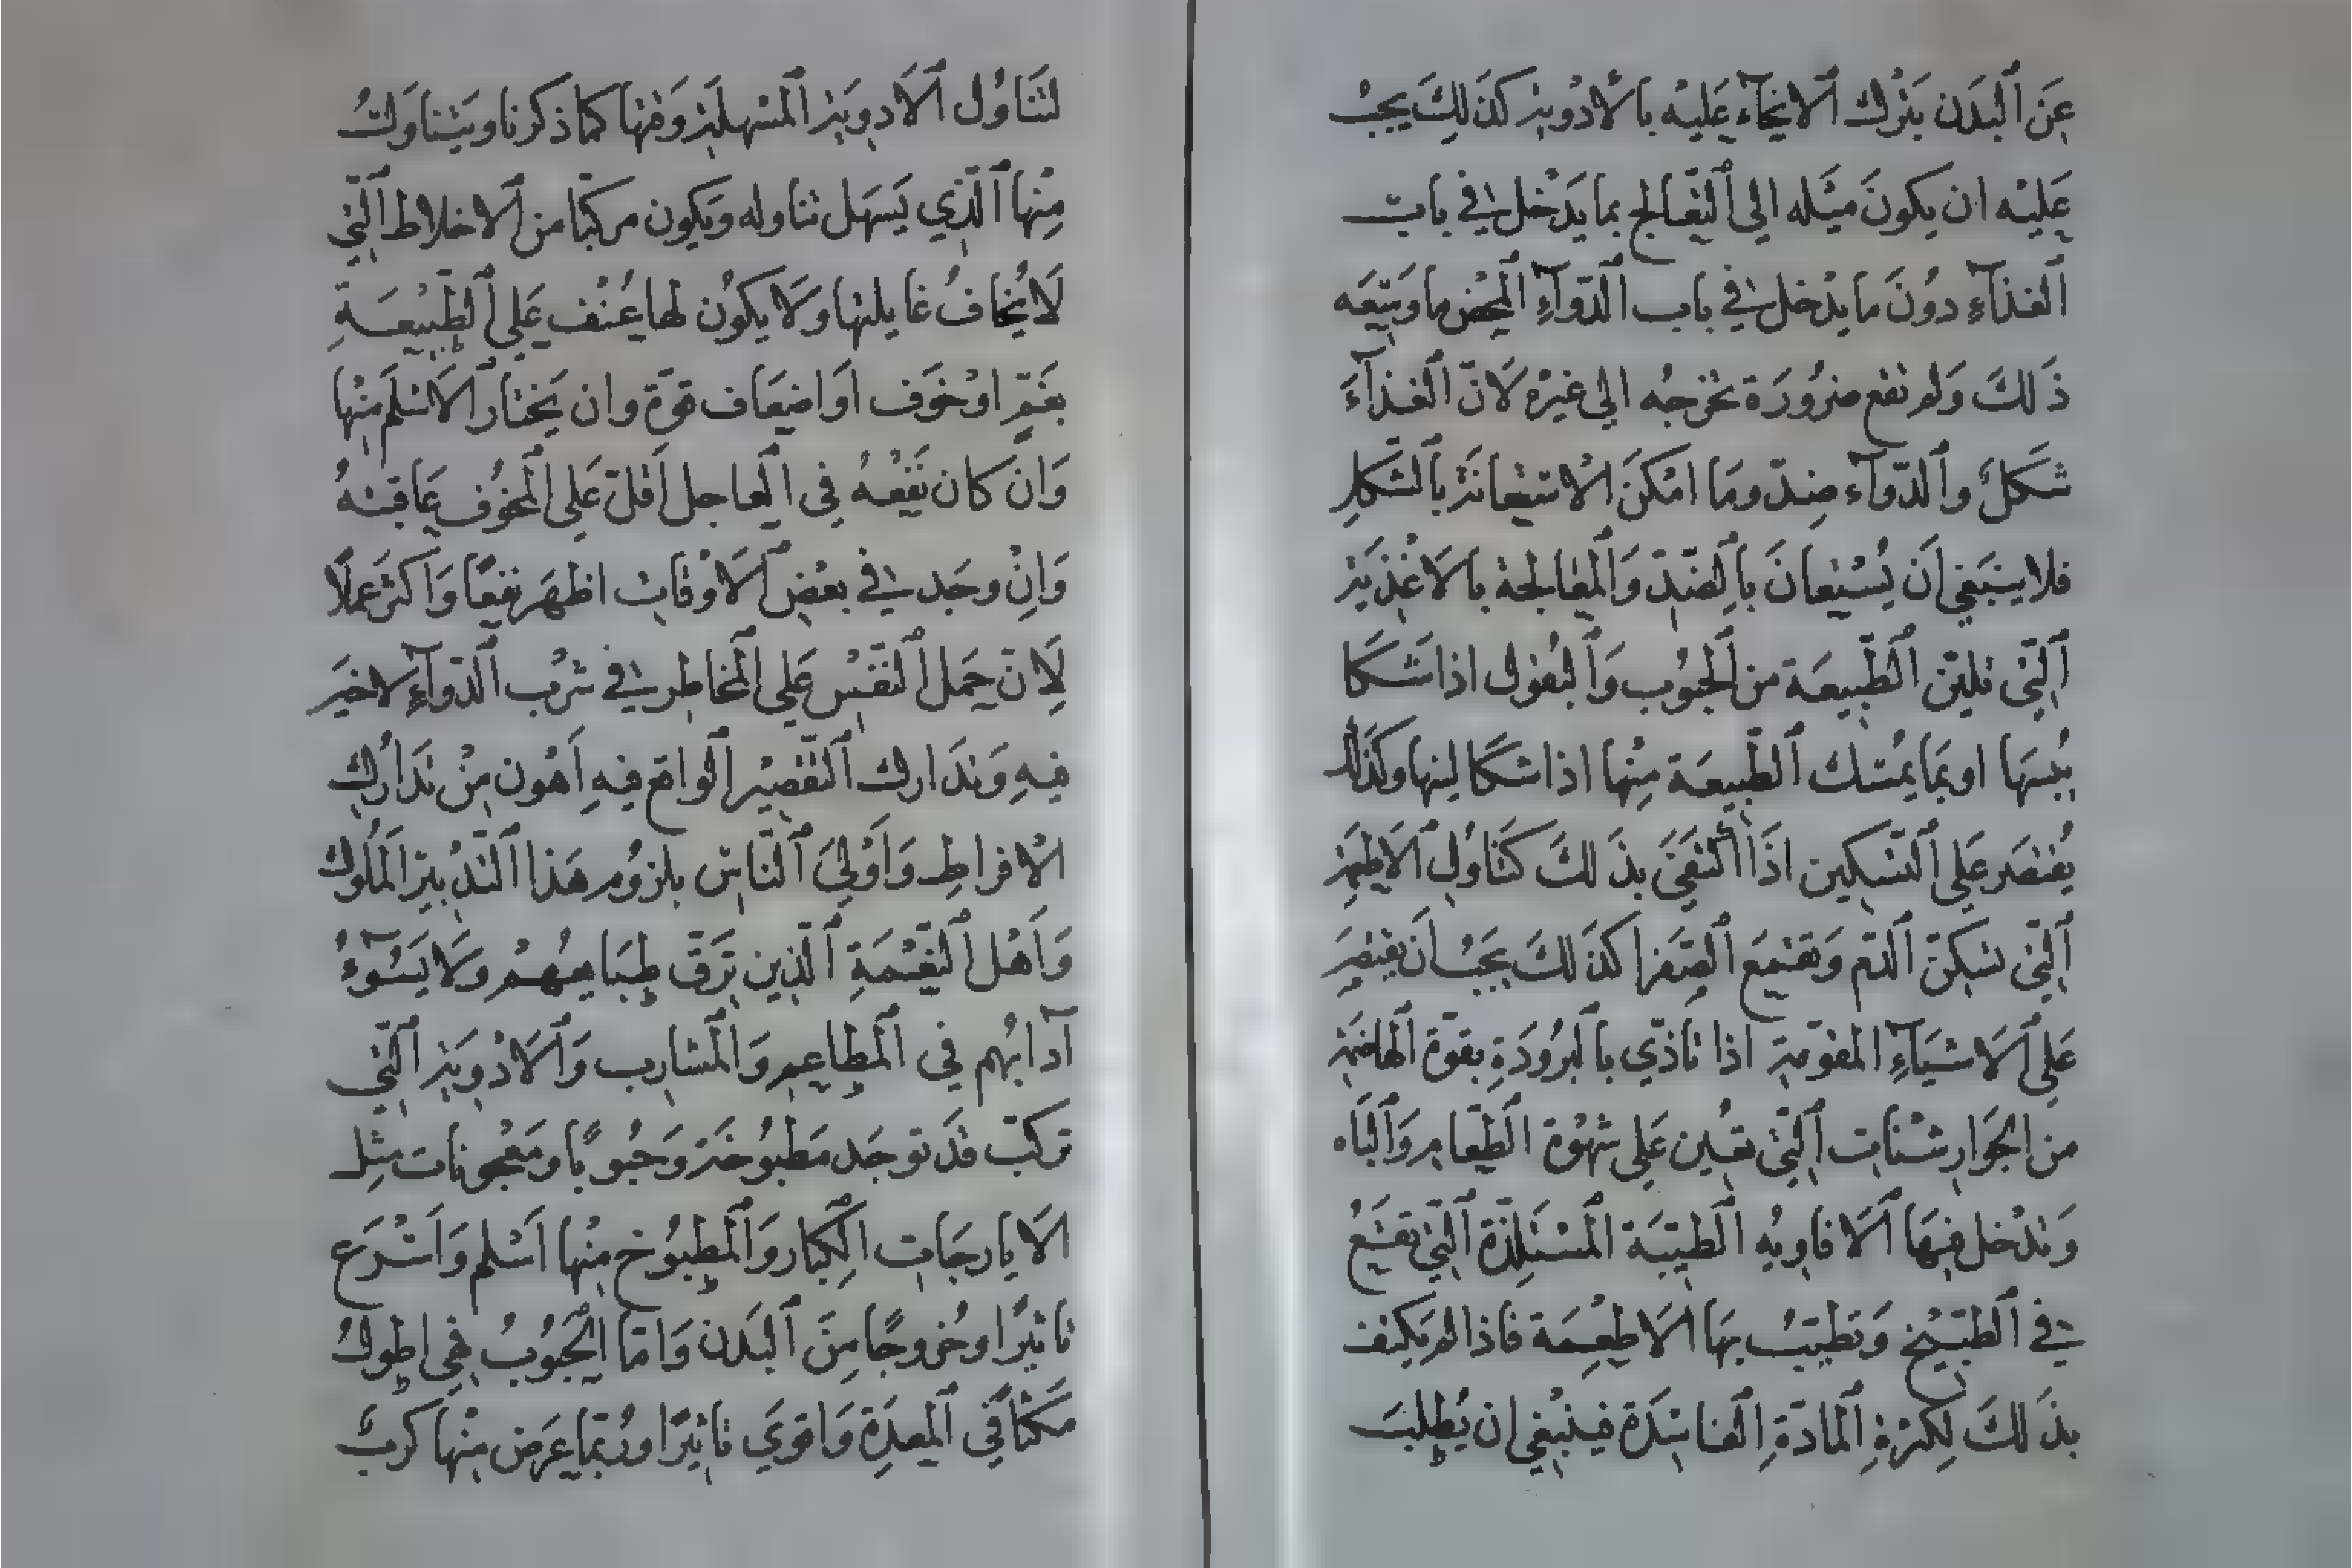 عَن اَلْبَدَن بِتَرْك اَلانحَآء عَلَيْه بالأدْويَة كذَلِكَ يجبُ
عَلَيْه ان يكونَ مَيْله الى اَلتّعَالج بما يَدْخل في باب
اَلغذآءِ دوُنَ ما يدْخل في باب اَلدّوآءِ اَلمحْض ما وَسِعَه
ذَلكَ وَلم تقع ضرُورَة تخرجُه الي غَيْره لانّ اَلغذآءَ
شَكلٌ واَلدّوآء ضِدّ ومَا امْكنَ الاسْتِعَانَة بالشّكلِ
فلا ينبَغي اَن يُسْتِعانَ باِلضّدّ وَاَلمعَالجة بالاَغْذيَة
اَلّتي تليّن اَلطّبيعَة من الحبُوب وَاَلبقول اذا شَكا
يُبسَهَا او بمَا يمُسْك اَلطّبيعَة مِنْها اذا شكا لينها وكَذَلكَ
يُقتصَر عَلى اَلتّسكين اذَا اكتفَىَ بذَلكَ كتَنَاوُل الاَطعمَة
اَلّتي تسَكنّ اَلدّم وَتقمَع اَلصّفرا كذَلكَ يجَبُ اَن يقتصِرَ
عَلى اَلاَشيَآءِ المقوّمة اذا تاذّي باَلبُرودَةِ بقوّة اَلهاضمَة
من الجوَارشْنات اَلّتي تعُين عَلى شهْوة اَلطّعَام وَاَلبَاه
وَتدْخل فيهَا اَلافاويْه اَلطّيّبَة اَلمسْتَلِذّة اَلّتي تقَع
في اَلطّبيْخ وَتطيّبُ بهَا الاَطعِمَة فاذا لم يَكتف
بذَلكَ لِكثرْةِ اَلمادّةِ اَلفاسَدَة فيَنبْغي ان يُطلَبَ
لتَنَاوُل اَلاَدويَة اَلمسْهلَة وَقتها كما ذكرنا ويَتناوَلُ
مِنْها اَلّذي يَسهَل تناوله وَيكون مركبّا من اَلاخلاط اَلّتي
لَا يُخافُ غايلتها وَلَا يكوُن لها عُنْف عَلى اَلطّبيْعَةِ
بغَمٍّ اوْ خَوف اوَ اضعَاف قوّة وان يَختار اَلاَسْلم منْها
وَانْ كان نَفْعهُ في اَلعاجل اَقلّ عَلى اَلمخوُف عَاقبتهُ
وَانِْ وجَد في بعْض اَلاَوْقات اظهَر نفعًا وَاكثرَ عملًا
لِانّ حَمل اَلنّفْس عَلى اَلمخاطر في شرْب اَلدّوآءِ لاخيَر
فيهِ وَتدَارك اَلتّقصيْر اَلواقع فيهِ اَهْون مِنْ تدَارُك
الْافراطِ وَاَوْليَ اَلنّاس بلزوُم هَذا اَلتّدْبيْر اَلملُوك
وَاَهْل اَلنّعْمَةِ اَلّذين تَرقّ طبَايعهُمْ ولَا يَسُوءُ
آدابُهم في اَلمطاعمِ وَاَلمشارب وَاَلاَدْويَة اَلّتي
تركبّ قدَ توجَد مَطبُوخَة وَحُبوبًا ومَعْجونات مثِل
الاَيارجَات اَلِكبَار وَاَلمطبوُخ مِنْها اَسْلم وَاَسْرَع
تاثيًرا وخُروجًا مِنَ اَلبدَن وَامّا اَلحُبوُبُ فهي اطولُ
مكثاً في اَلمعدَةِ وَاقويَ تاثيًرا ورُبمّا عرَض مِنْها كربٌ